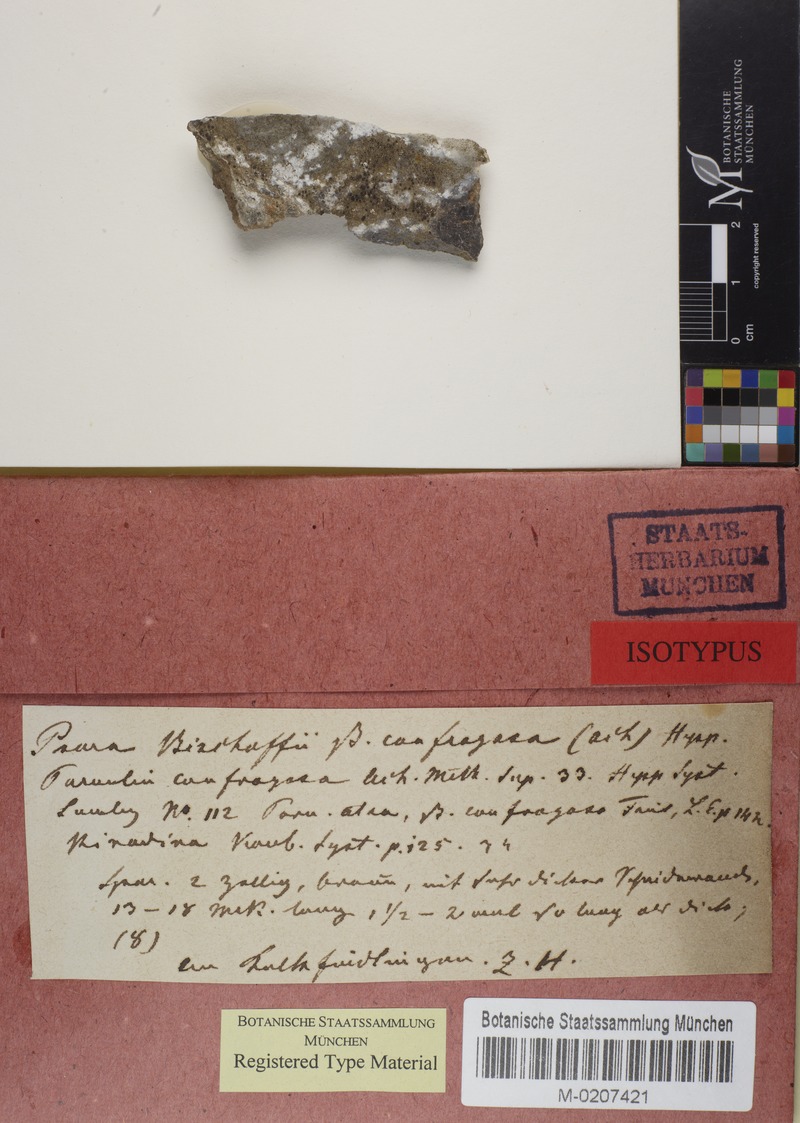 BOTANISCHE
STAATSSAMMLUNG
MÜNCHEN
0 1 2
cm
copyright reserved
STAATS-
HERBARIUM
MÜNCHEN
ISOTYPUS
Psora Bischoffii β. confragosa (Ach) Hepp.
Parmelia confragosa Ach. Meth. Sup. 33. Hepp Syst.
No. 112 Parm. atra, β. confragosa Fries, L. E. p 142.
Rinodina Syst. p. 125.
Spor. 2 zellig, braun, mit sehr dicker
13 – 18 lang 1½ – 2 mal so lang als dick;
(8)
an Z. H.
BOTANISCHE STAATSSAMMLUNG
MÜNCHEN
Registered Type Material
Botanische Staatssammlung München
M-0207421